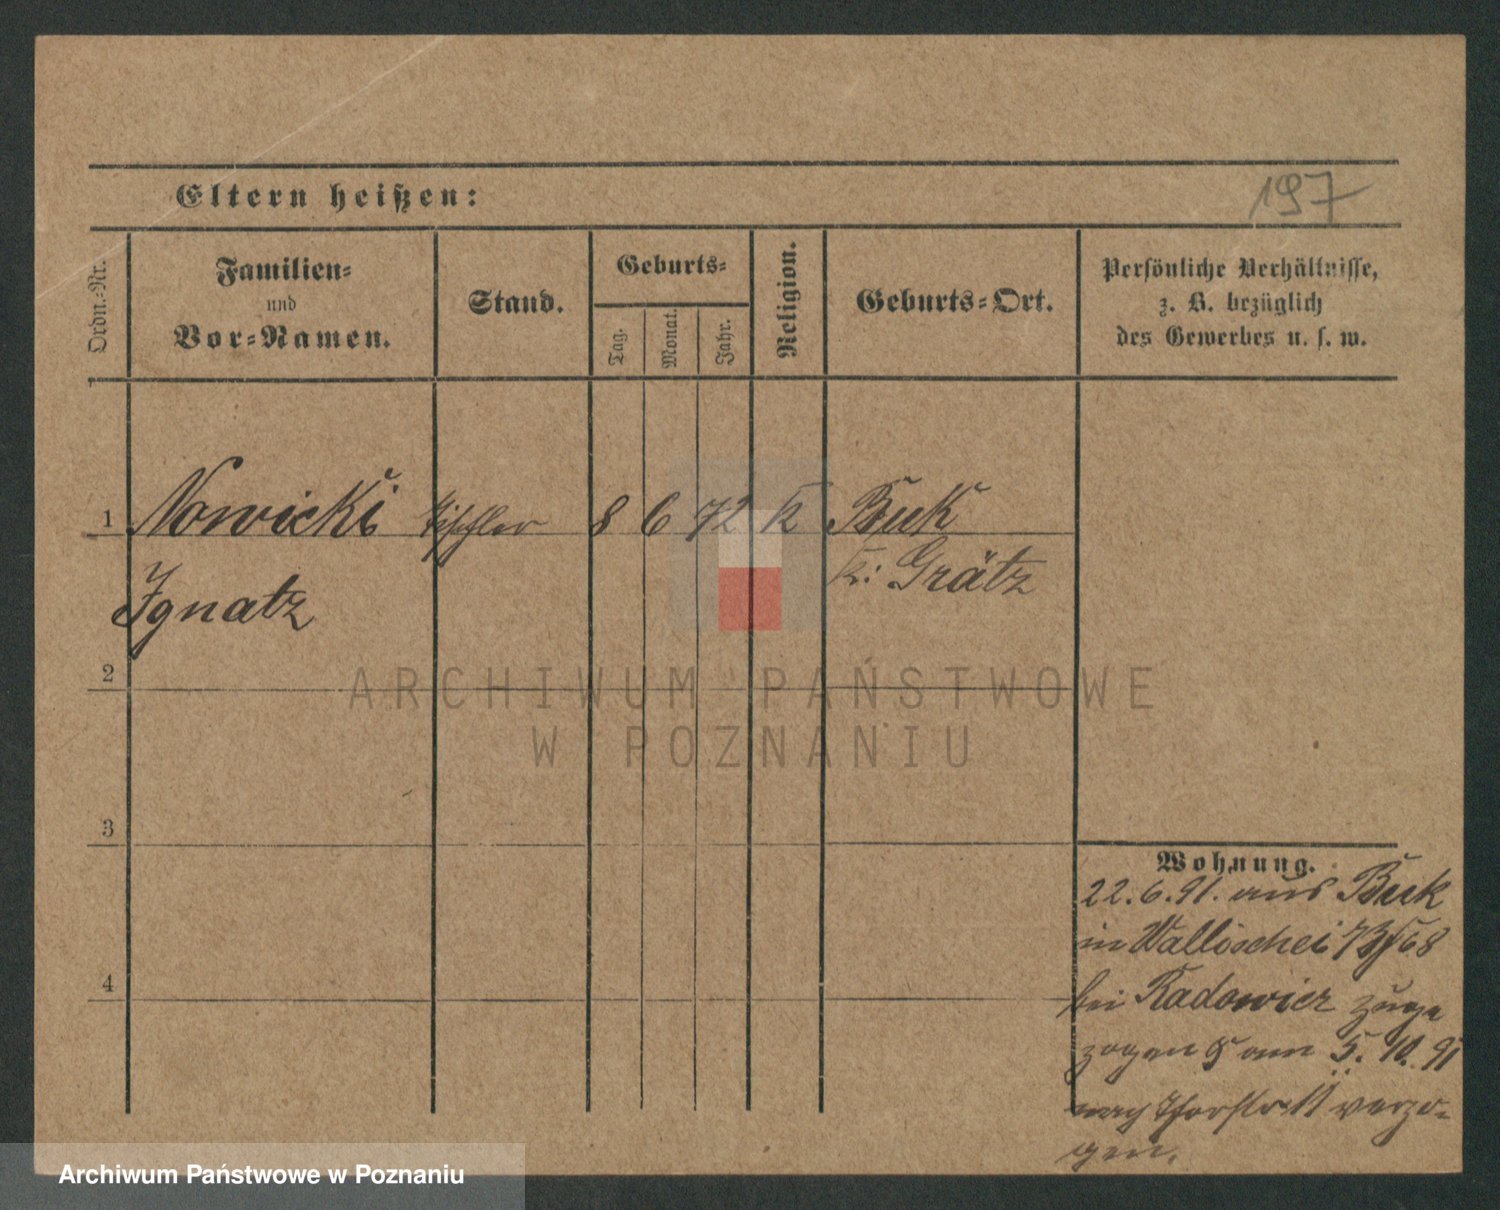 Eltern heißen:
197
Ordn.-Nr.
Familien-
und
Vor-Namen.
Stand.
Geburts-
Tag.
Monat.
Jahr.
Religion.
Geburts-Ort.
Persönliche Verhältnisse,
z. B. bezüglich
des Gewerbes u. s. w.
1 Nowicki Tischler 8 6 72 k Buk
Kr: Grätz
Ignatz
2
3
4
ARCHIWUM PAŃSTWOWE
W POZNANIU
Wohnung.
22.6.91. aus Buk
in Wallischei 73/68
bei Radowicz zuge
zogen am 5. 10. 91
nach verzo-
gen.
Archiwum Państwowe w Poznaniu